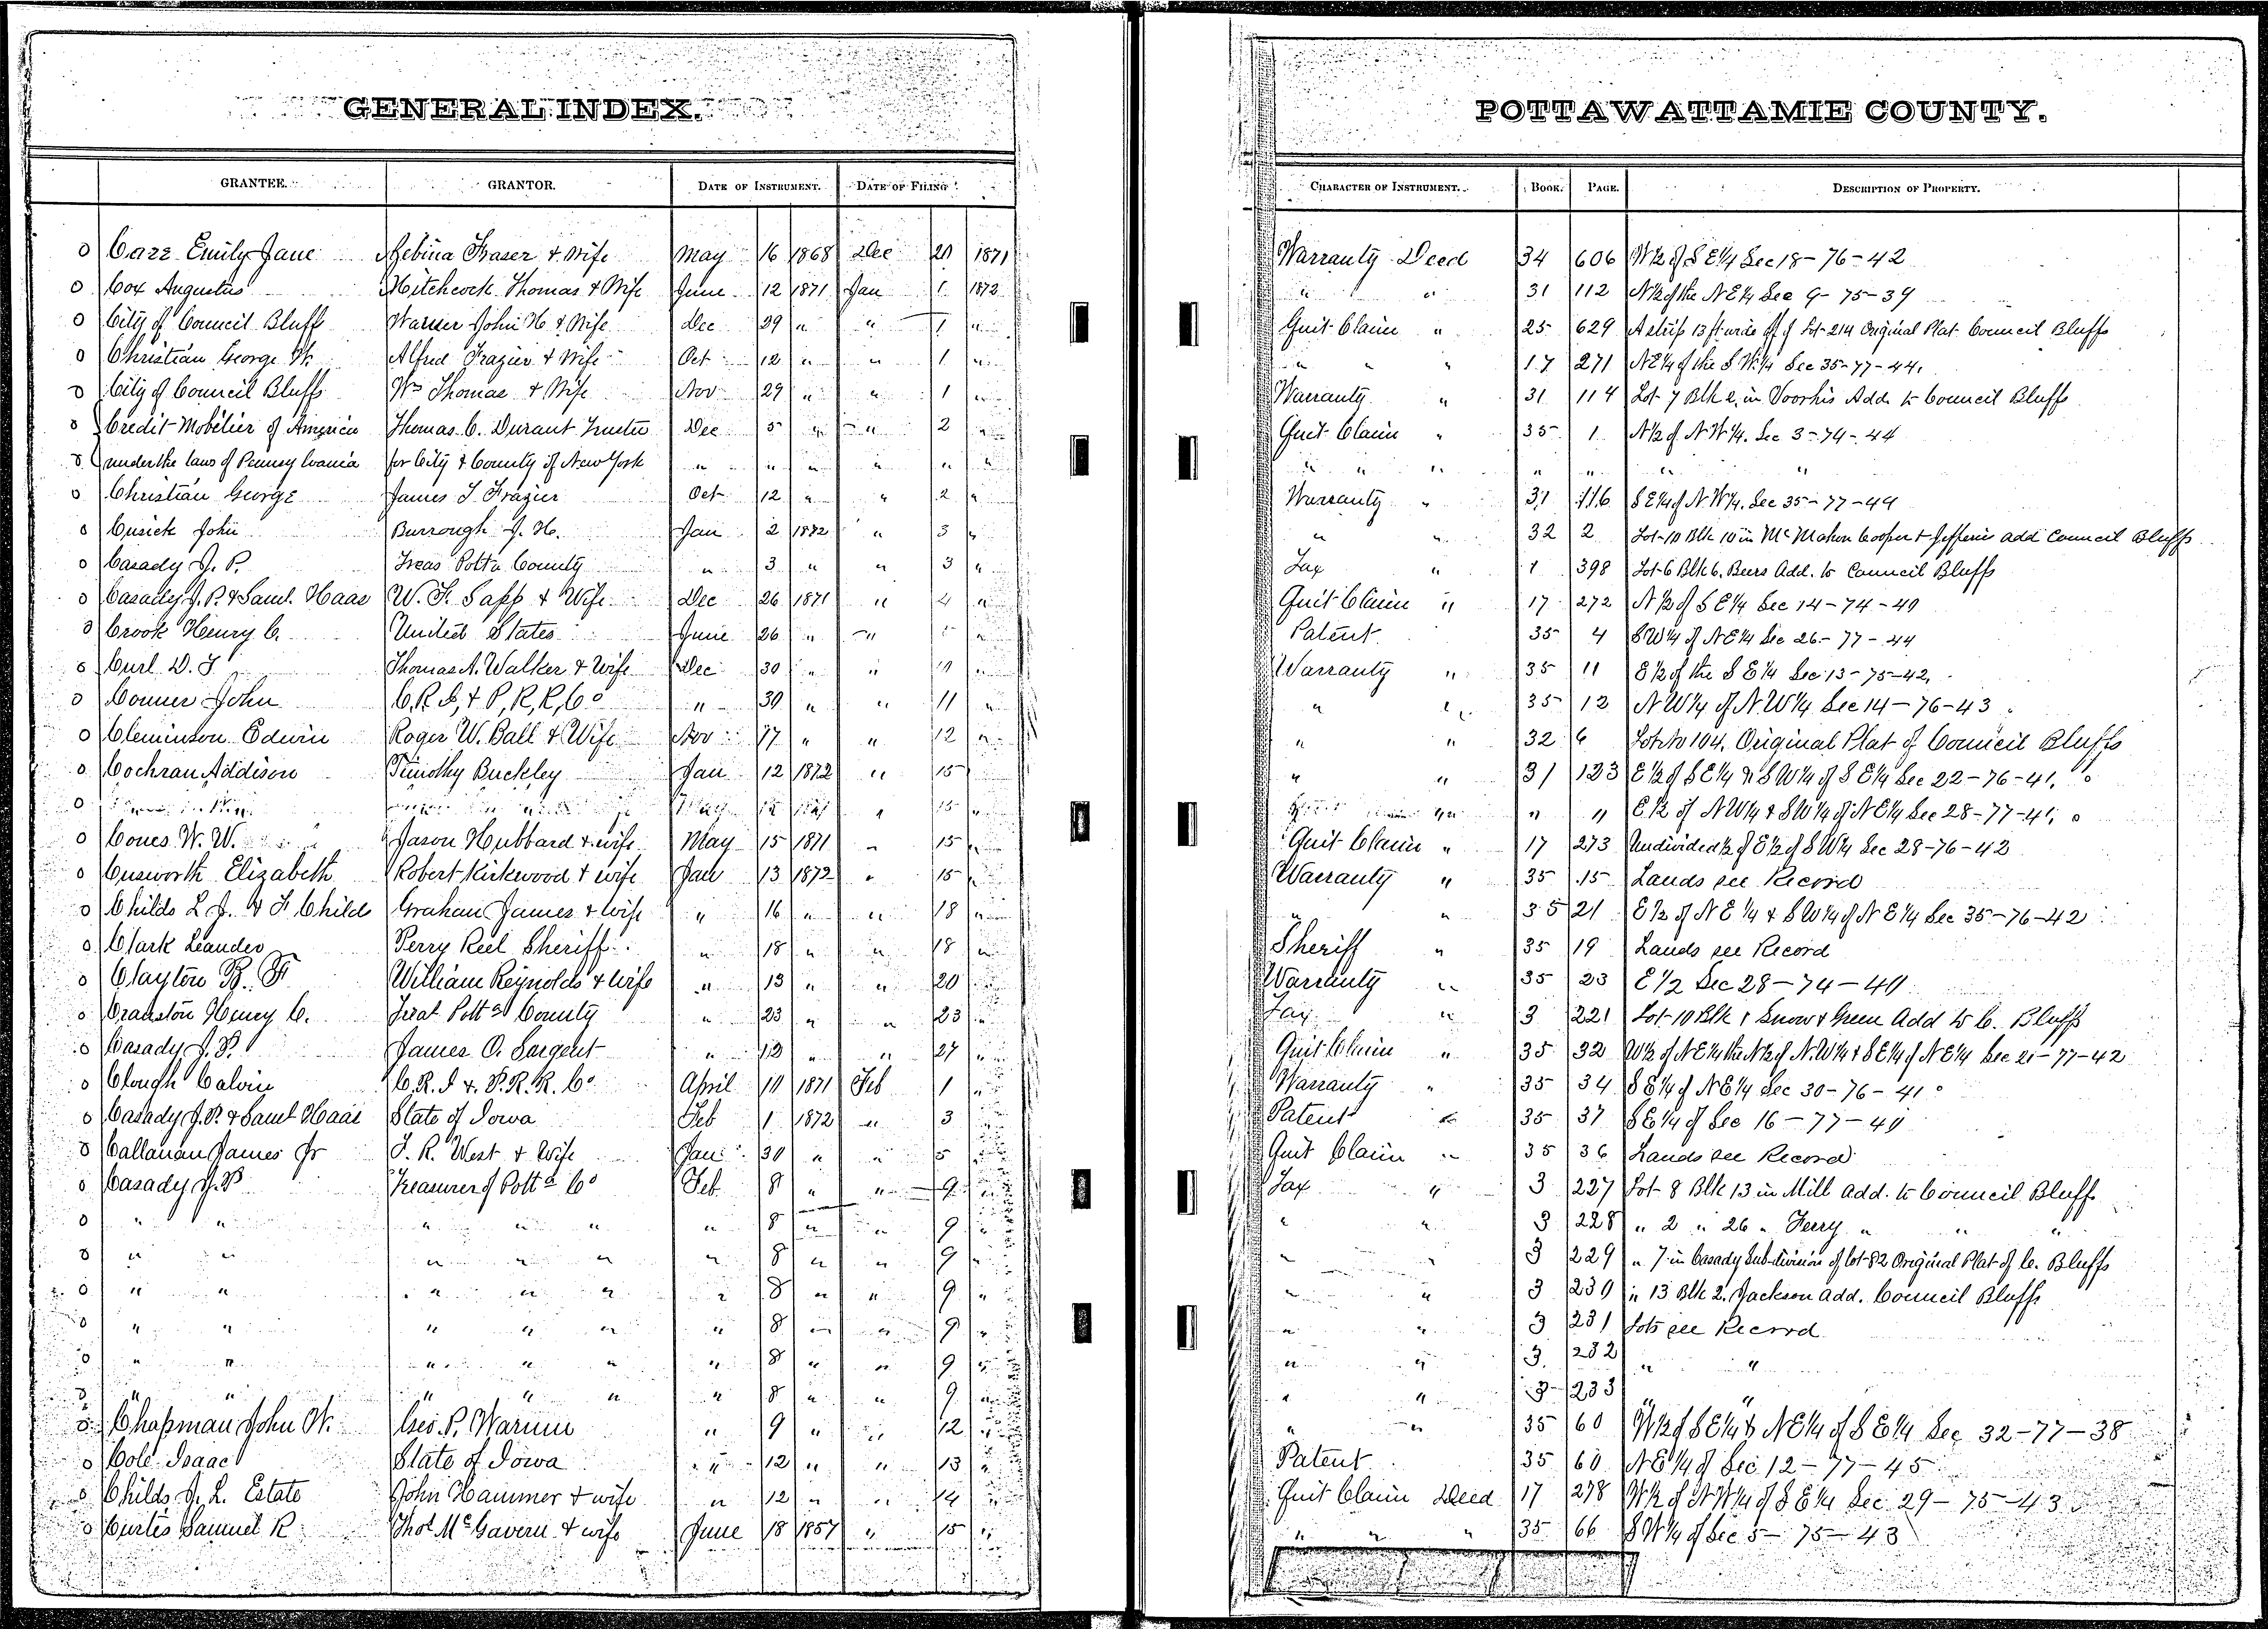 GENERAL INDEX. POTTAWATTAMIE COUNTY.
GRANTEE. GRANTOR. DATE OF INSTRUMENT. DATE OF FILING. CHARACTER OF INSTRUMENT. BOOK. PAGE. DESCRIPTION OF PROPERTY.
o Emily Jane Fraser & Wife May 16 1868 Dec 20 1871 Warranty Deed 34 606 W½ of S E¼ Sec 18-76-42
o Cox Augustus Hitchcock Thomas & Wife June 12 1871 Jan 1 1872 " " 31 112 N½ of the N E¼ Sec 9-75-39
o City of Council Bluff Warner John H. & Wife Dec 29 " " 1 " Quit Claim " 25 629 A strip 13 ft wide off of Lot 214 Original Plat Council Bluffs
o Christian George W. Alfred Frazier & Wife Oct 12 " " 1 " " " " 17 271 N E¼ of the S W¼ Sec 35-77-44.
o City of Council Bluffs Wm Thomas & Wife Nov 29 " " 1 " Warranty " 31 114 Lot 7 Blk 2, in Voorhis Add. to Council Bluffs
o Credit Mobilier of America Thomas C. Durant Trustee Dec 5 " " 2 " Quit Claim " 35 1 N½ of N W¼. Sec 3-74-44
o under the laws of Pennsylvania for City & County of New York " " " " " " " " " " " " "
o Christian George James T Frazier Oct 12 " " 2 " Warranty " 31 116 S E¼ of N W¼. Sec 35-77-44
o Cusick John Burrough J. H. Jan 2 1872 " 3 " " " 32 2 Lot 10 Blk 10 in McMahon Cooper & Jefferis add Council Bluffs
o Casady J. P. Treas Potta County " 3 " " 3 " Tax " 1 398 Lot 6 Blk 6, Beers Add. to Council Bluffs
o Casady J. P. & Saml. Haas W. F. Sapp & Wife Dec 26 1871 " 4 " Quit Claim " 17 272 N½ of S E¼ Sec 14-74-40
o Crook Henry C. United States June 26 " " " Patent 35 4 S W¼ of N E¼ Sec 26-77-44
o Curl D. T Thomas A. Walker & Wife Dec 30 " " " Warranty " 35 11 E½ of the S E¼ Sec 13-75-42,
o Conner John C, R I, & P, R, R, Co " 30 " " 11 " " " 35 12 N W¼ of N. W¼ Sec 14-76-43
o Cleminson Edwin Roger W. Ball & Wife Nov 17 " " 12 " " " 32 6 Lot No 104, Original Plat of Council Bluffs
o Cochran Addison Timothy Buckley Jan 12 1872 " 15 " " 31 123 E½ of S E¼ & S W¼ of S E¼ Sec 22-76-41.
o " 15 " " E½ of N W¼ & S W¼ of N E¼ Sec 28-77-41,
o Coues W. W. Jason Hubbard & wife May 15 1871 " 15 " Quit Claim " 17 273 Undivided ½ of E½ of S W¼ Sec 28-76-42
o Cusworth Elizabeth Robert Kirkwood & wife Jan 13 1872 " 15 " Warranty " 35 15 Lands see Record
o Childs L J. & F Childs Graham James & wife " 16 " " 18 " " " 35 21 E½ of N E¼ & S W¼ of N E¼ Sec 35-76-42
o Clark Leander Perry Reel Sheriff " 18 " " 18 " Sheriff " 35 19 Lands see Record
o Clayton B. F William Reynolds & wife " 13 " " 20 Warranty " 35 23 E ½ Sec 28-74-40
o Cranston Henry C. Treat Potta County " 23 " " 23 " Tax " 3 221 Lot 10 Blk 1 Snow & Green Add to C. Bluffs
o Casady J. P. James O. Sargent " 12 " " 27 " Quit Claim " 35 32 W½ of N E¼ the N½ of N. W¼ & S E¼ of N E¼ Sec 21-77-42
o Clough Calvin C. R. I & P. R. R. Co April 10 1871 Feb 1 " Warranty " 35 34 S E¼ of N E¼ Sec 30-76-41
o Casady J. P. & Saml Haas State of Iowa Feb 1 1872 " 3 Patent " 35 37 S E¼ of Sec 16-77-40
o Callanan James Jr T. R. West & Wife Jan 30 " " 5 " Quit Claim " 35 36 Lands see Record
o Casady J. P Treasurer of Potta Co Feb 8 " " 9 " Tax " 3 227 Lot 8 Blk 13 in Mill Add. to Council Bluffs
o " " " " " " 8 " " 9 " " " 3 228 " 2 " 26 " Ferry " " "
o " " " " " " 8 " " 9 " " 3 229 " 7 in Casady Sub-division of lot 82 Original Plat of C. Bluffs
o " " " " " " 8 " " 9 " " " 3 230 " 13 Blk 2. Jackson Add. Council Bluffs
o " " " " " " 8 " " 9 " " " 3 231 Lots see Record
o " " " " " " 8 " " 9 " " " 3 232 " "
o " " " " " " 8 " " 9 " " " 3 233 " "
o Chapman John W. Geo. P. Warum " 9 " " 12 " " " 35 60 W½ of S E¼ & N E¼ of S E¼ Sec 32-77-38
o Cole Isaac State of Iowa " 12 " " 13 " Patent 35 60 N E¼ of Sec 12-77-45
o Childs J. L. Estate John Hammer & wife " 12 " " 14 " Quit Claim Deed 17 278 W½ of N W¼ of S E¼ Sec 29-75-43
o Curtis Samuel R Thos McGavern & wife June 18 1857 " 15 " " " " 35 66 S W¼ of Sec 5-75-43